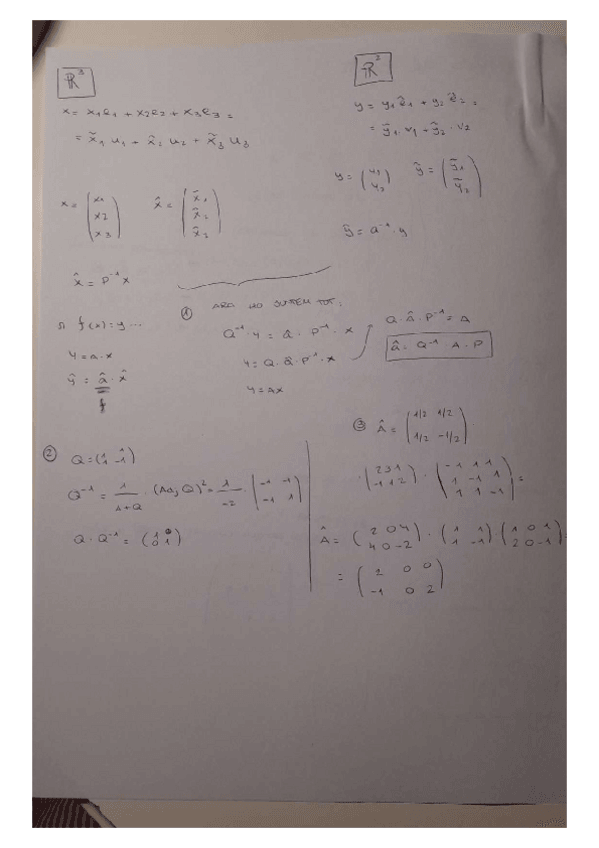 ℝ³
x = x1e1 + x2e2 + x3e3 =
= x̃1 u1 + x̂2 u2 + x̃3 u3
x = (x1 x2 x3) x̂ = (x̃1 x̂2 x̃3)
x̂ = P⁻¹ x
si f(x) = y ...
y = A·x
ŷ = â·x̂
f
ℝ²
y = y1ẽ1 + y2ẽ2 =
= ỹ1·v1 + ỹ2·v2
y = (y1 y2) ŷ = (ỹ1 ỹ2)
ŷ = Q⁻¹·y
① ARA HO JUNTEM TOT:
Q⁻¹·y = â·P⁻¹·x
y = Q·â·P⁻¹·x
y = AX
Q·Â·P⁻¹ = A
â = Q⁻¹ A·P
② Q = (1 1 / 1 -1)
Q⁻¹ = 1/|Q| · (Adj Q)ᵗ = 1/-2 · (-1 -1 / -1 1)
Q·Q⁻¹ = (1 0 / 0 1)
③ Â = (1/2 1/2 / 1/2 -1/2)·
·(2 3 1 / -1 1 2)·(-1 1 1 / 1 -1 1 / 1 1 -1) =
Â = (2 0 4 / 4 0 -2)·(1 1 / 1 -1)·(1 0 1 / 2 0 -1) =
= (2 0 0 / -1 0 2)